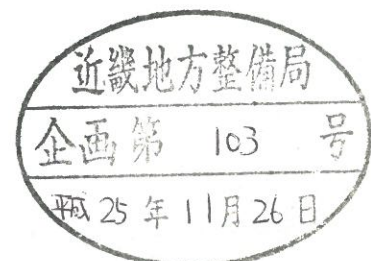 近畿地方整備局
企画第 103 号
平成 25 年 11月 26 日